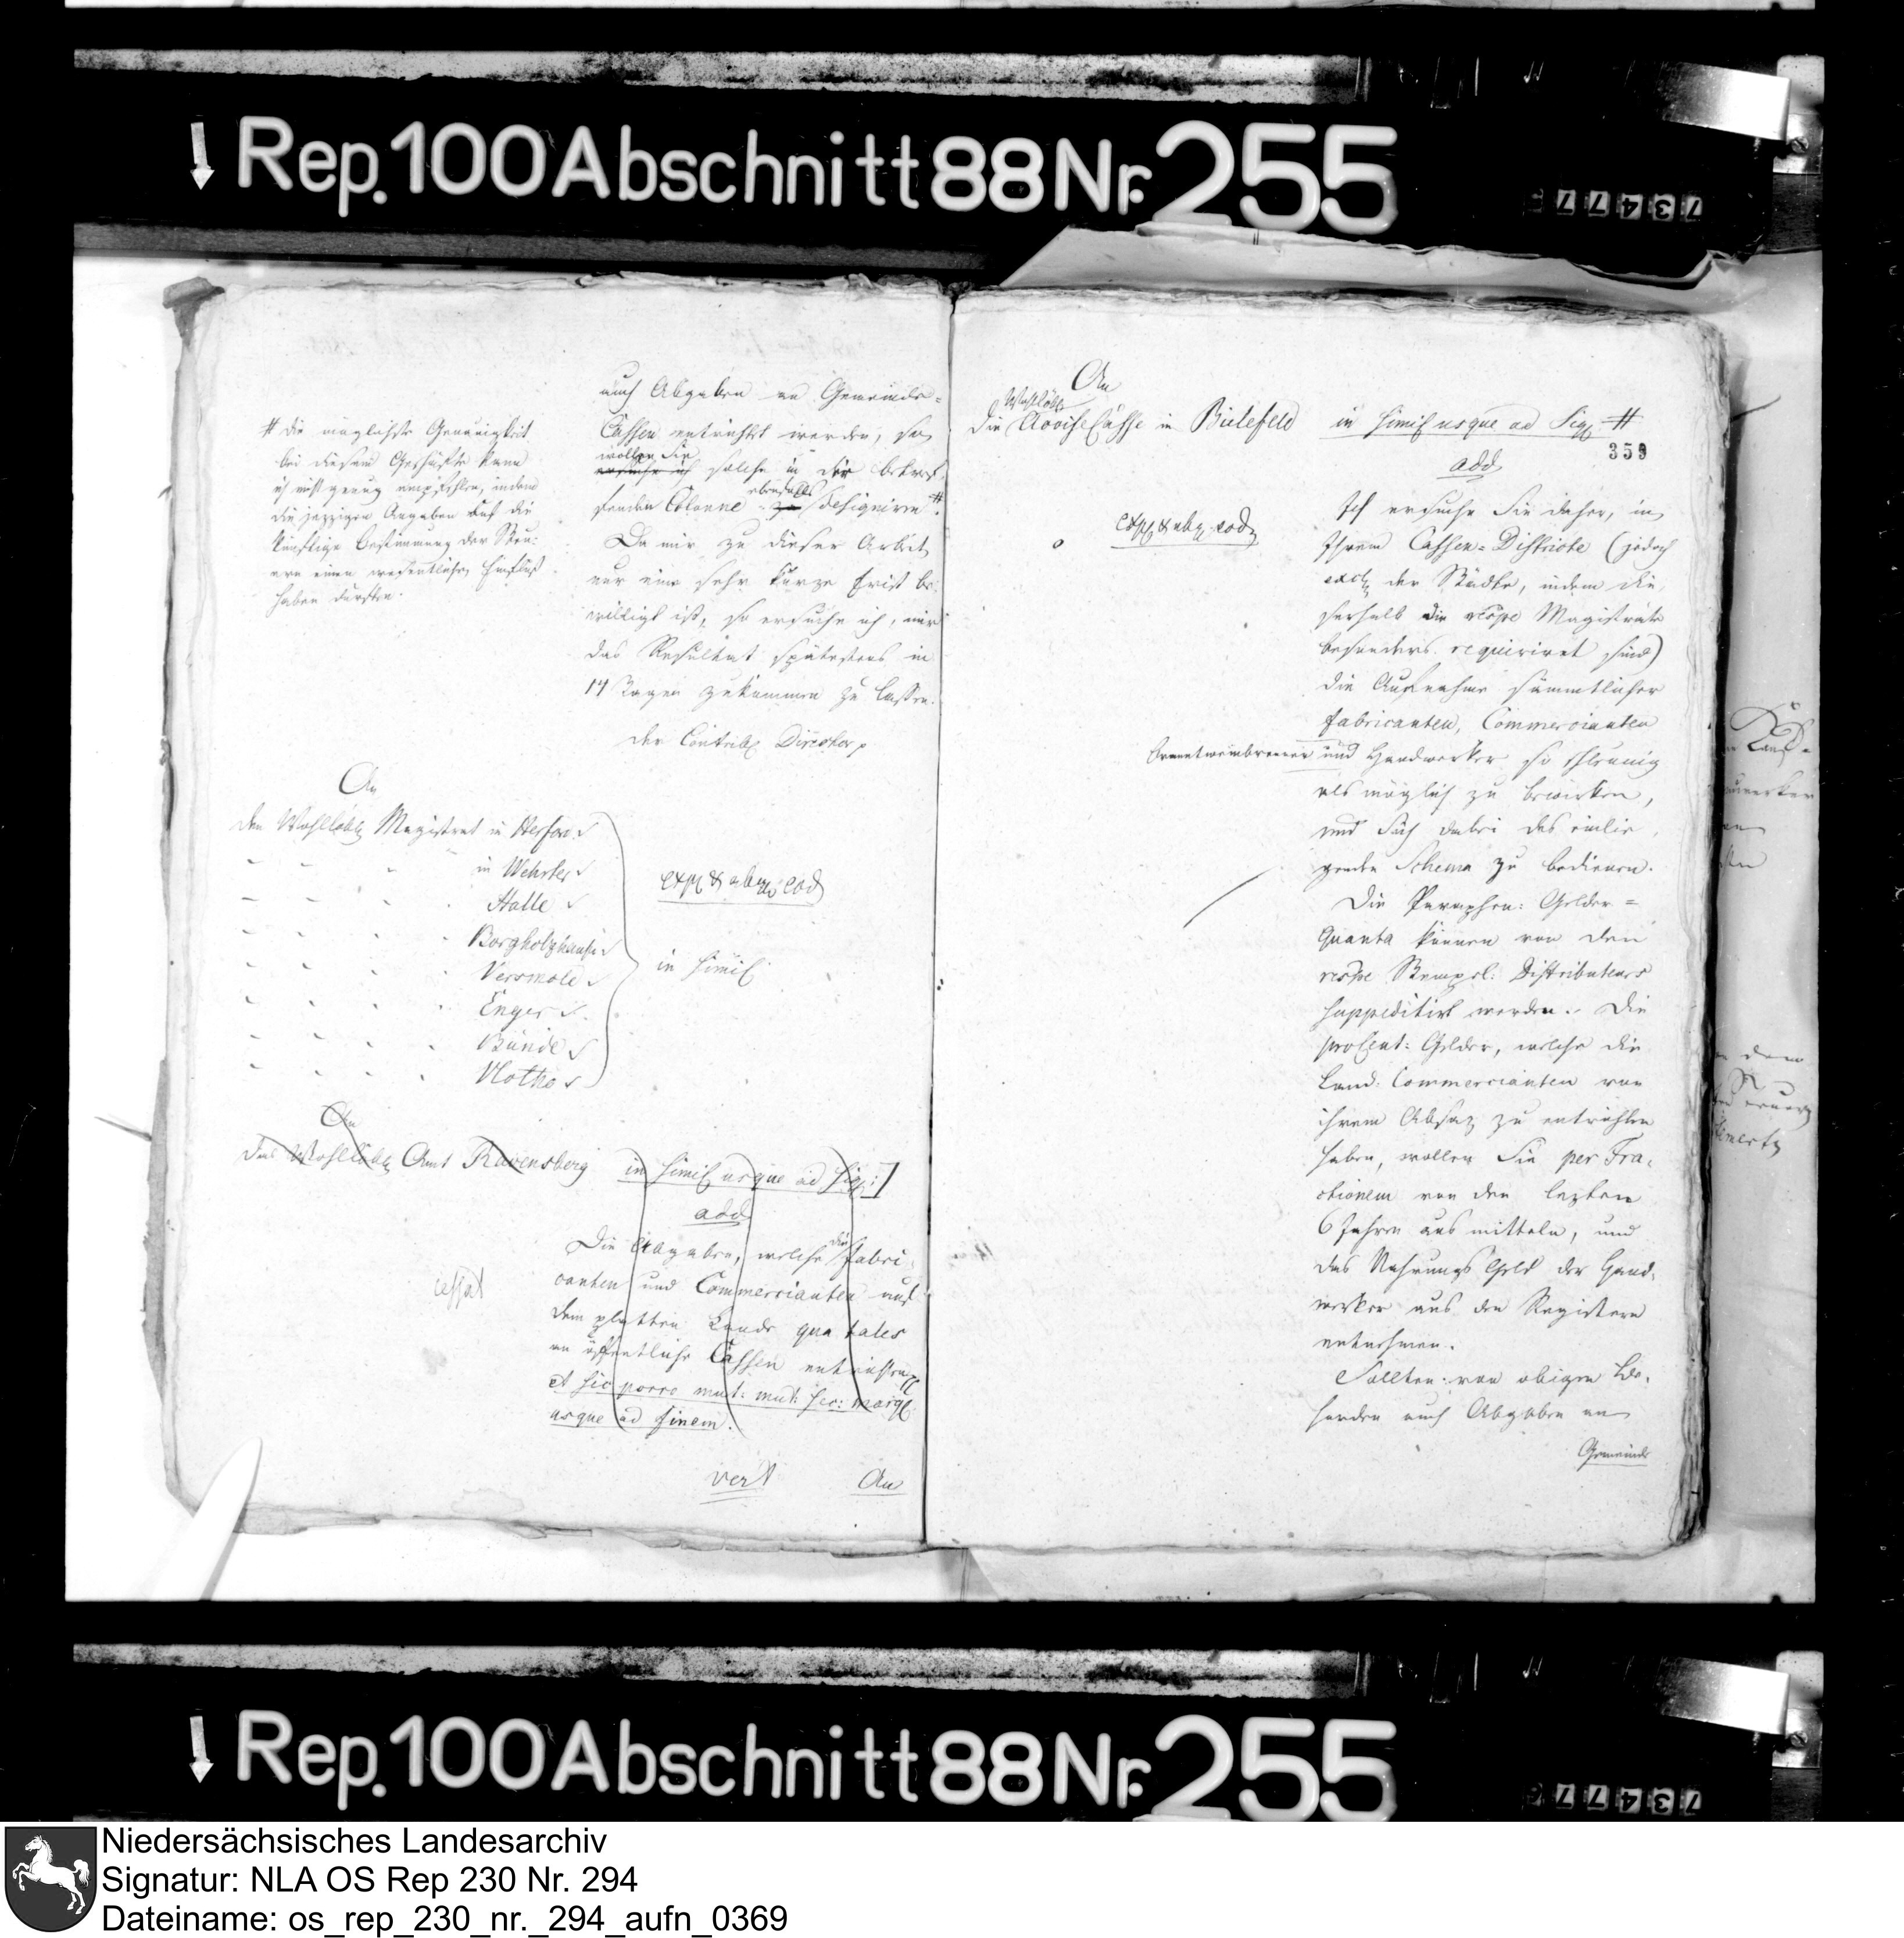 ↓ Rep. 100 A Abschnitt 88 Nr. 255
73477
auch Abgaben an Gemeinde=
Cassen entrichtet werden, so
wollen Sie
ersuche ich solche in der betref-
fenden Colonne ebenfalls zu designiren #.
# die möglichste Genauigkeit
bei diesem Geschäfte kann
ich nicht genug empfehlen, indem
die jezzigen Angaben auf die
künftige Bestimmung der Steu-
ern einen wesentlichen Einfluß
haben dürften.
Da mir zu dieser Arbeit
nur eine sehr kurze Frist be-
willigt ist, so ersuche ich, mir
das Resultat spätestens in
14 Tagen zukommen zu lassen.
der Contrib. Director
An
den Wohllöbl. Magistrat in Herford
in Wehrter
Halle
Borgholzhausen
Versmold
Enger
Bünde
Vlotho
exp. & abg. eod
in simil
An
das Wohllöbl. Amt Ravensberg in simil usque ad sig. :/
add
Die Abgaben, welche die Fabri-
canten und Commercianten auf
dem platten Lande qua tales
an öffentliche Cassen entrichten
et sic porro mut: mut: sec: marg.
usque ad finem.
cessat
vert An
An
die Wohllöbl. Accise Casse in Bielefeld in simil usque ad Sig. #
359
add
exp. & abg. eod
Ich ersuche Sie daher, in
Ihrem Cassen=Districte (jedoch
excl. der Städte, indem die-
serhalb die respe Magisträte
besonders requiriret sind)
die Aufnahme sämmtlicher
Fabricanten, Commercianten
Branntweinbrenner und Handwerker so schleunig
als möglich zu bewirken,
und Sich dabei des einlie-
genden Schema zu bedienen.
Die Paraphen: Gelder=
Quanta können von den
respe Stempel: Distributeurs
suppeditirt werden. Die
proCent: Gelder, welche die
Land: Commercianten von
ihrem Absaz zu entrichten
haben, wollen Sie per Fra-
ctionem von den lezten
6 Jahren ausmitteln, und
das Nahrungs Geld der Hand-
werker aus den Registern
entnehmen.
Sollten von obigen
auch Abgaben an
Gemeinde
↓ Rep. 100 A Abschnitt 88 Nr. 255
73477
Niedersächsisches Landesarchiv
Signatur: NLA OS Rep 230 Nr. 294
Dateiname: os_rep_230_nr._294_aufn_0369